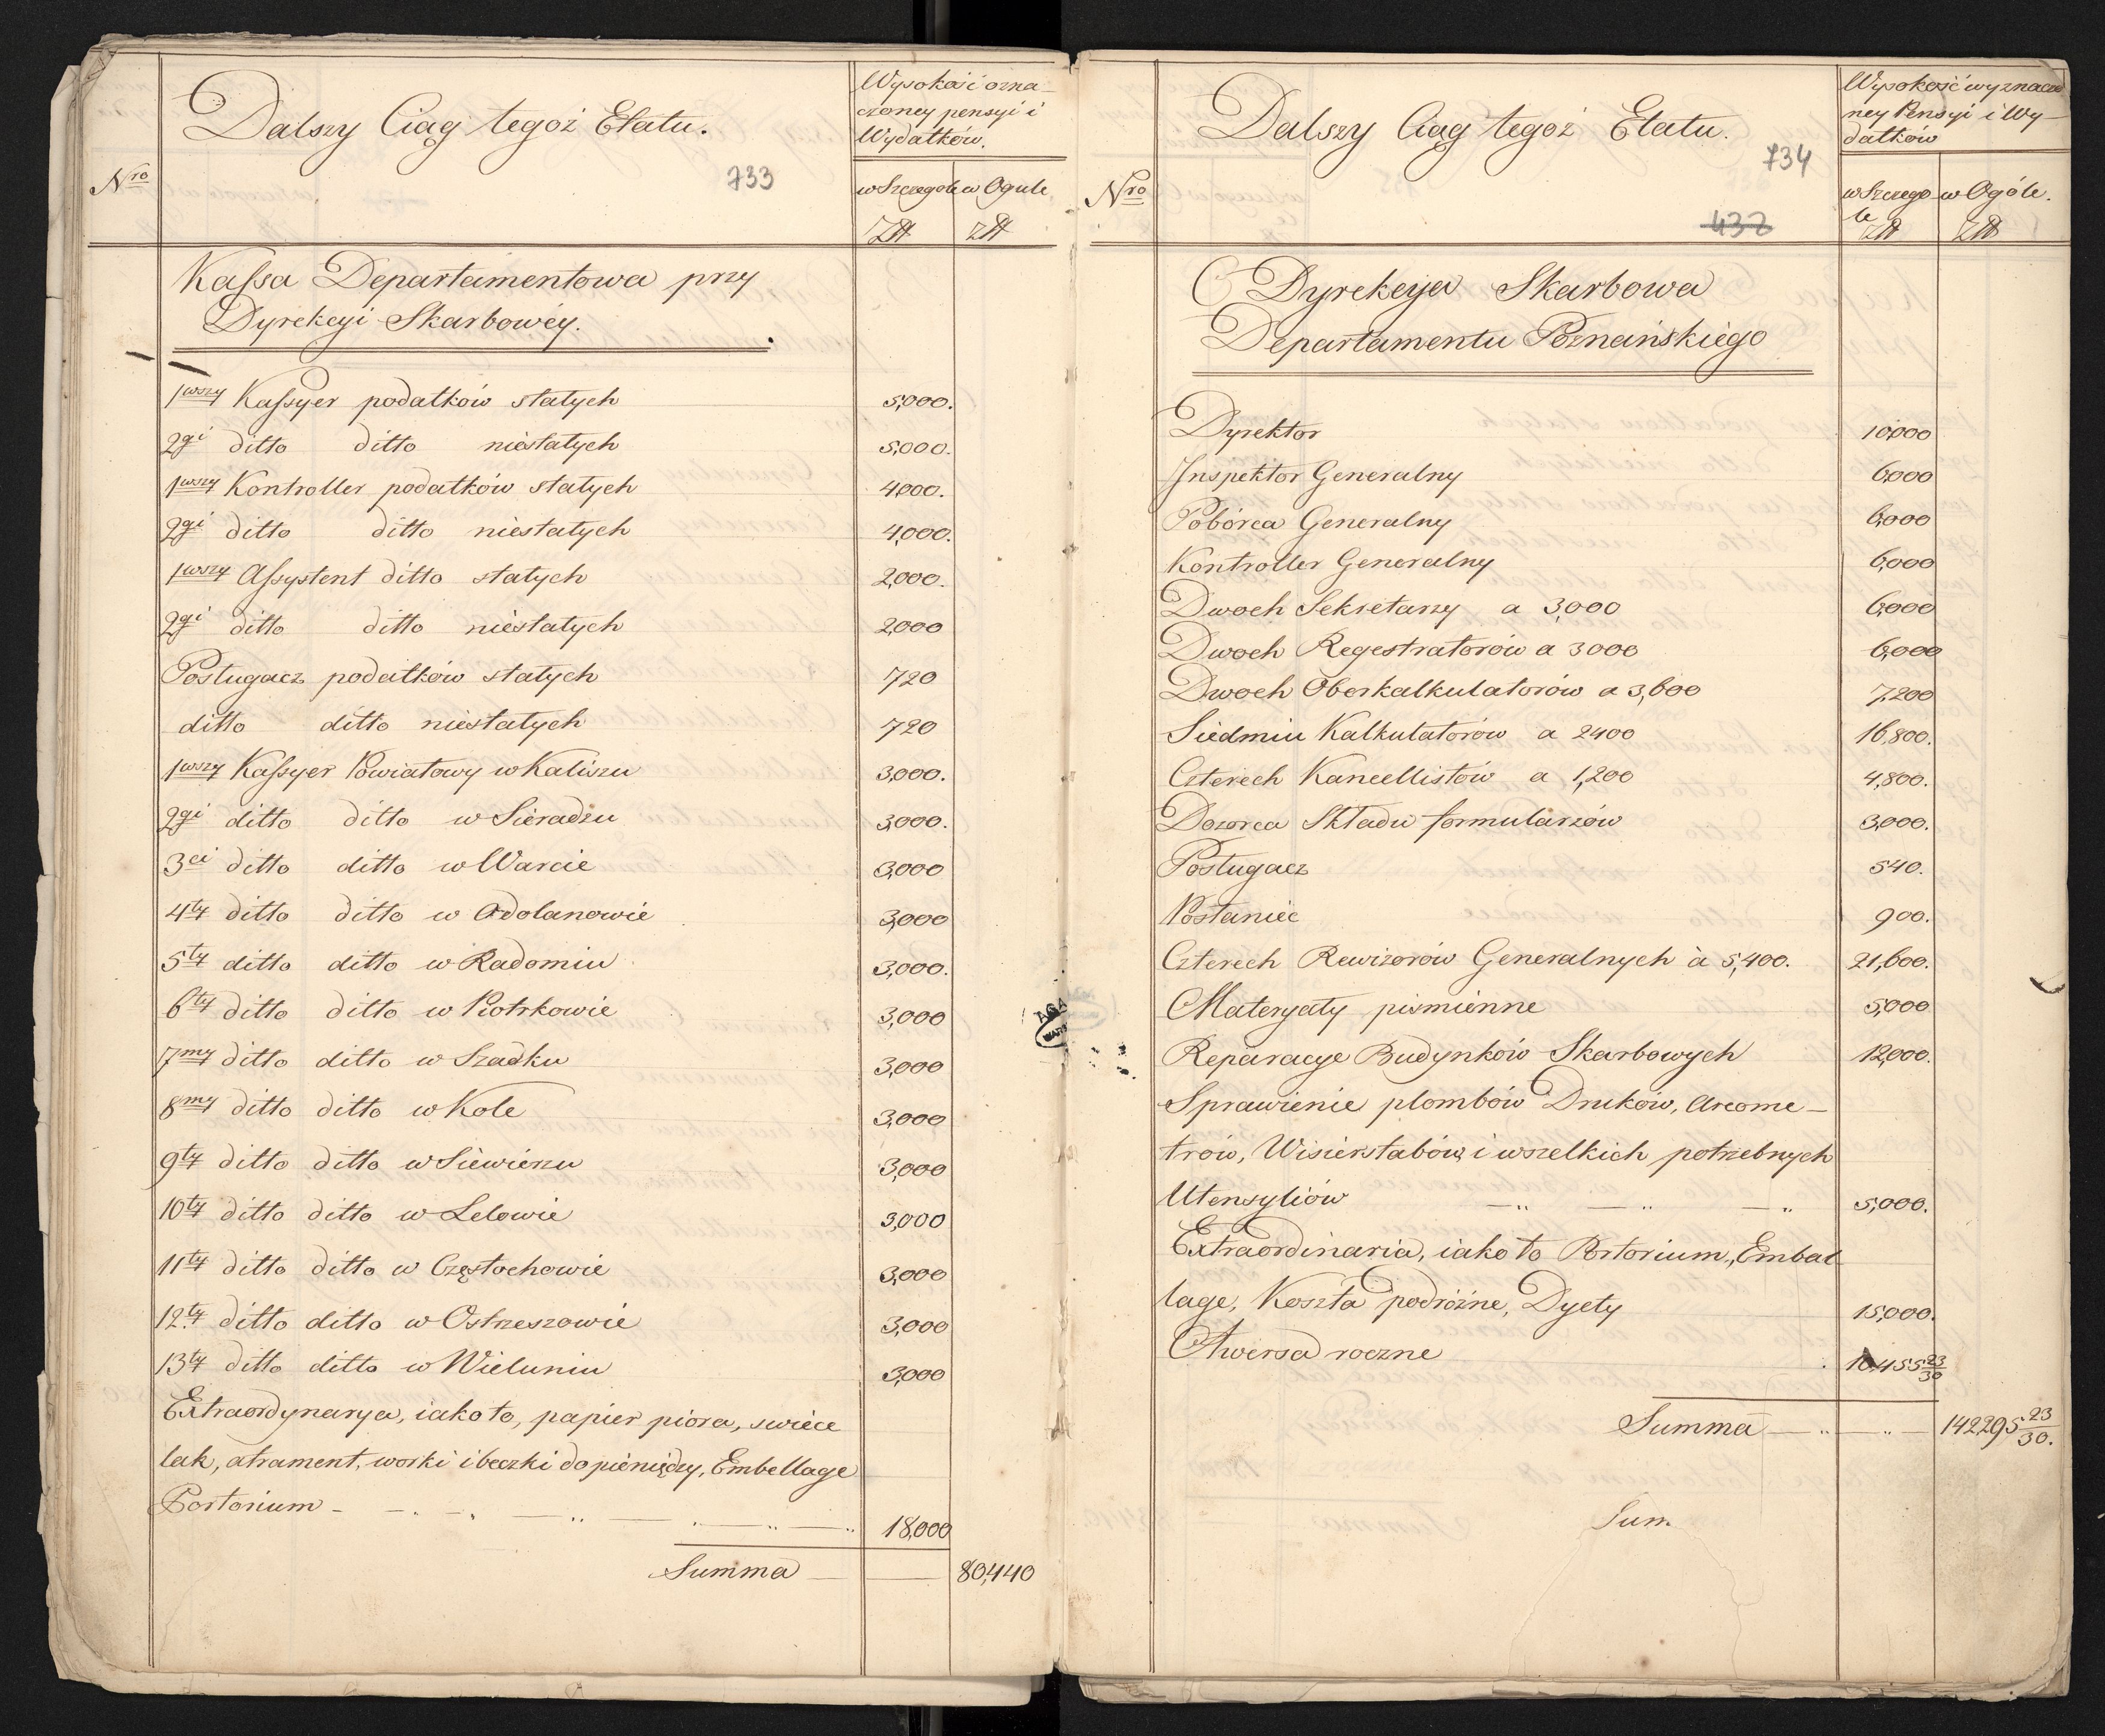 Dalszy Ciąg tegoż Etatu.
733
Nro
Wysokość ozna-
czoney pensyi i
Wydatków.
w Szczegole w Ogule
Zł Zł
Kassa Departamentowa przy
Dyrekcyi Skarbowéy.
1wszy Kassyer podatków stałych 5,000.
2gi ditto ditto niestałych 5,000.
1wszy Kontroller podatków stałych 4,000.
2gi ditto ditto niestałych 4,000.
1wszy Assystent ditto stałych 2,000.
2gi ditto ditto niestałych 2,000
Posługacz podatków stałych 720
ditto ditto niestałych 720
1wszy Kassyer Powiatowy w Kaliszu 3,000.
2gi ditto ditto w Sieradzu 3,000.
3ci ditto ditto w Warcie 3,000
4ty ditto ditto w Odolanowie 3,000
5ty ditto ditto w Radomiu 3,000.
6ty ditto ditto w Piotrkowie 3,000
7my ditto ditto w Szadku 3,000
8my ditto ditto w Kole 3,000
9ty ditto ditto w Siewierzu 3,000
10ty ditto ditto w Lelowie 3,000
11ty ditto ditto w Częstochowie 3,000
12ty ditto ditto w Ostrzeszowie 3,000
13ty ditto ditto w Wieluniu 3,000
Extraordynarya, iako to, papier piora, swiece
lak, atrament, worki i beczki do pieniędzy, Embellage
Portorium 18,000
Summa 80,440
Dalszy Ciąg tegoż Etatu.
734
Nro
437
Wysokość wyznaczo
ney Pensyi i Wy-
datków
w Szczego w Ogóle.
le
Zł Zł
Dyrekcya Skarbowa
Departamentu Poznańskiego
Dyrektor 10,000
Inspektor Generalny 6,000
Pobórca Generalny 6,000
Kontroller Generalny 6,000
Dwoch Sekretarzy a 3,000 6,000
Dwoch Regestratorów a 3000 6,000
Dwoch Oberkalkulatorów a 3,600 7,200
Siedmiu Kalkulatorów a 2400 16,800.
Czterech Kancellistów a 1,200 4,800.
Dozorca Składu formularzów 3,000.
Posługacz 540.
Posłaniec 900.
Czterech Rewizorów Generalnych à 5,400. 21,600.
Materyały pismienne 5,000
Reparacye Budynków Skarbowych 12,000.
Sprawienie plombów Druków, Areome-
trów, Wisierstabów i wszelkich potrzebnych
Utensyliów 5,000.
Extraordinaria, iako to Portorium, Embal
lage, Koszta podróżne, Dyety 15,000.
Aversa roczne 10,455 23/30
Summa 142295 23/30.
Sum.